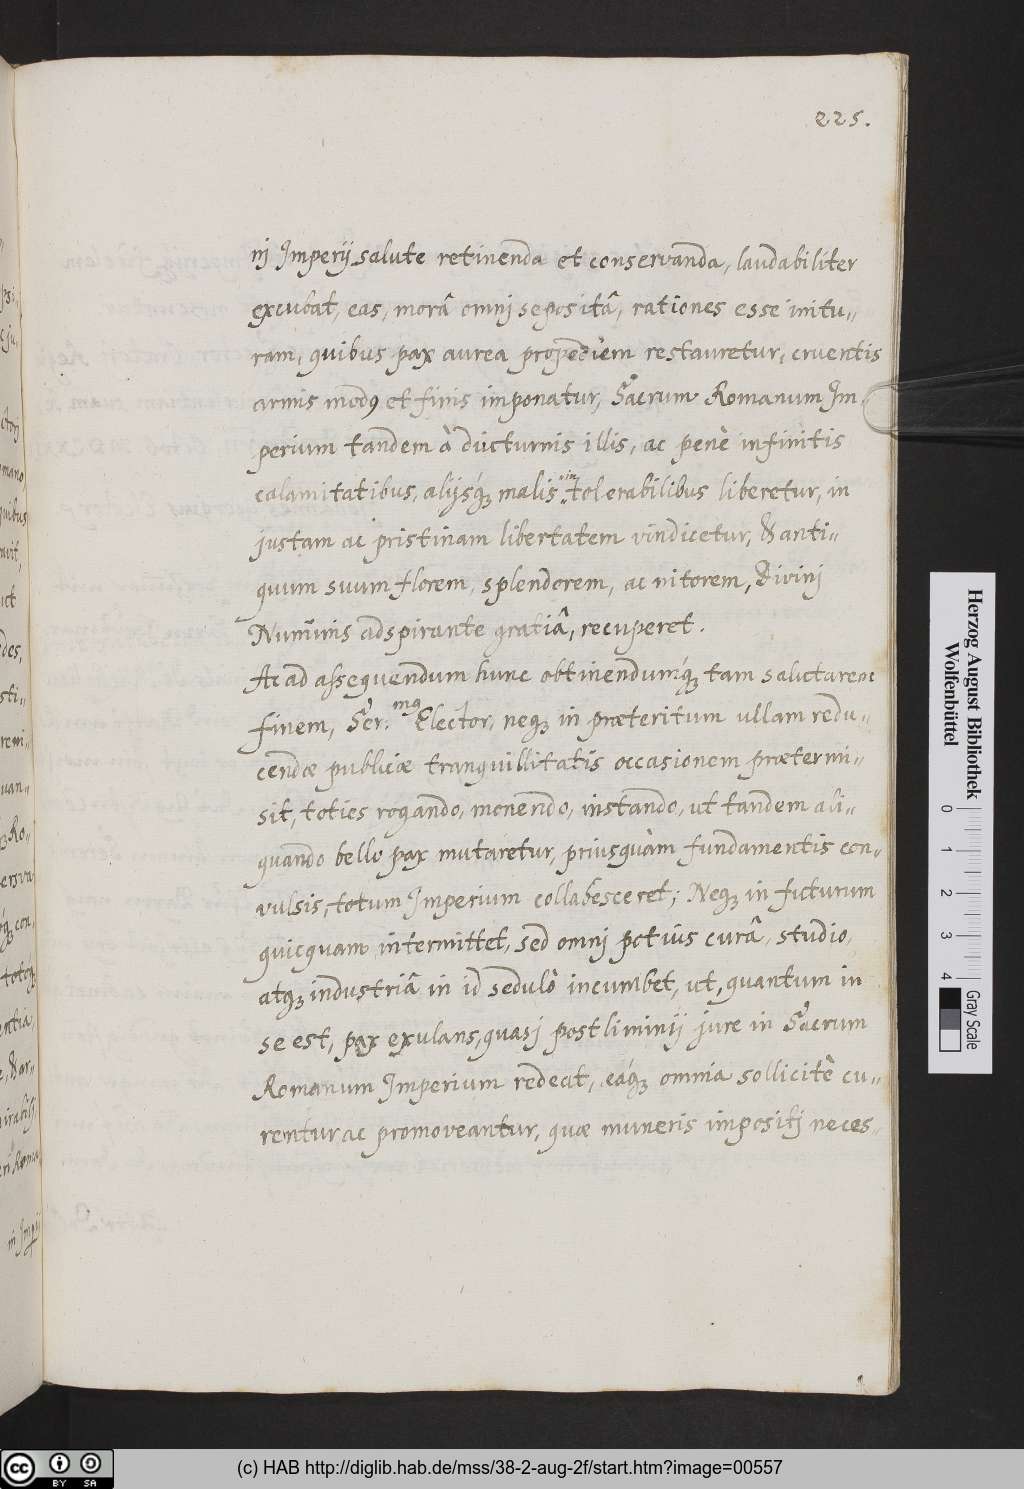 225.
nj Imperij salute retinenda et conservanda, laudabiliter
excubat, eas, morâ omnj sepositâ, rationes esse initu„
ram, quibus pax aurea propediem restauretur, cruentis
armis modꝰ et finis imponatur, Sacrum Romanum Im„
perium tandem à diuturnis illis, ac penè infinitis
calamitatibus, alijsq́ꝫ malis in tolerabilibus liberetur, in
justam ac pristinam libertatem vindicetur, & anti„
quum suum florem, splendorem, ac nitorem, Divinj
Numinis adspirante gratiâ, recuperet.
Ac ad assequendum hunc obtinendumq́ꝫ tam salutarem
finem, Ser.ᵐᵃ Elector, neqꝫ in præteritum ullam redu„
cendæ publicæ tranquillitatis occasionem prætermi„
sit, toties rogando, monendo, instando, ut tandem ali„
quando bello pax mutaretur, priusquàm fundamentis con„
vulsis, totum Imperium collabesceret; Neqꝫ in futurum
quicquam intermittet, sed omnj potiùs curâ, studio,
atqꝫ industriâ in id sedulò incumbet, ut, quantum in
se est, pax exulans, quasj postliminij jure in Sacrum
Romanum Imperium redeat, eaq́ꝫ omnia sollicitè cu„
rentur ac promoveantur, quæ muneris impositj neces„
Herzog August Bibliothek
Wolfenbüttel
0 1 2 3 4
Gray Scale
cc BY SA
(c) HAB http://diglib.hab.de/mss/38-2-aug-2f/start.htm?image=00557